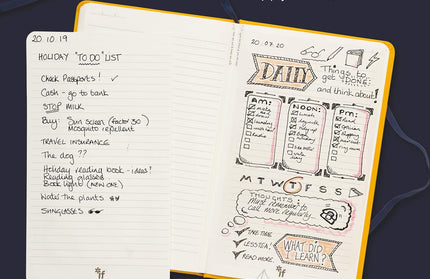 20.10.19
HOLIDAY "TO DO" LIST
Check Passports! ✓
Cash - go to bank
STOP MILK
Buy: Sun screen (factor 30)
Mosquito repellent
TRAVEL INSURANCE
The dog ??
Holiday reading book - ideas!
Reading glasses
Book light (NEW ONE)
Water the plants
SUNGLASSES
if
20.07.20
DAILY
Things to
get DONE:
and think about!
AM:
NOON:
PM:
M T W T F S S
THOUGHTS
Must remember to
call more regularly
ME TIME.
LESS TEA!
READ MORE.
WHAT DID
I LEARN?
if